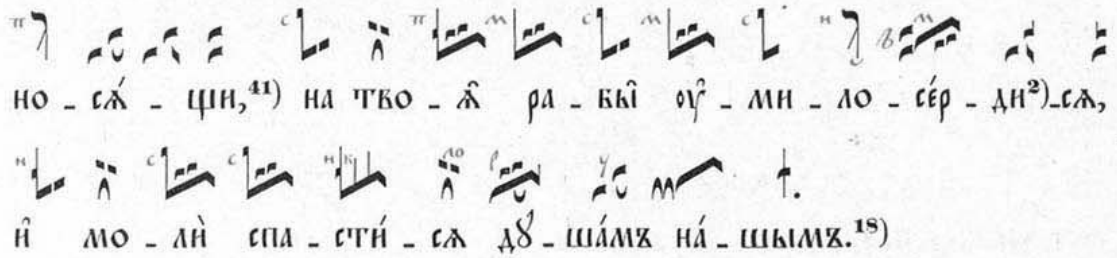 но - сѧ́ - щи,⁴¹) на тво - ѧ̑ ра - бы̑ оу҆́ - ми - ло - се́р - ди²)-сѧ,
и҆̑ мо - лѝ спа - сти́ - сѧ дꙋ - ша́мъ на́ - шымъ.¹⁸)